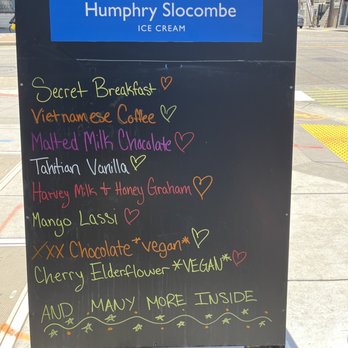 Humphry Slocombe
ICE CREAM
Secret Breakfast
Vietnamese Coffee
Malted Milk Chocolate
Tahitian Vanilla
Harvey Milk + Honey Graham
Mango Lassi
XXX Chocolate *vegan*
Cherry Elderflower *VEGAN*
AND MANY MORE INSIDE